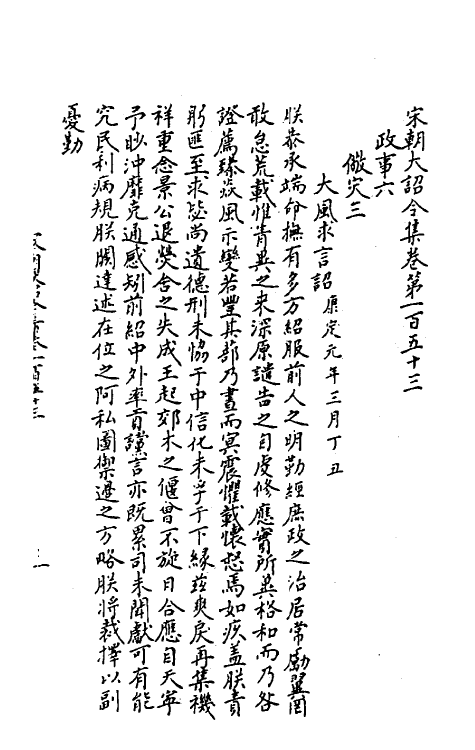 宋朝大詔令集卷第一百五十三
政事六
儆灾三
大風求言詔康定元年三月丁丑
朕恭承端命撫有多方紹服前人之明勤經庶政之治居常勵翼罔
敢怠荒載惟眚異之來深原譴告之自虔修應實所兾格和而乃咎
證薦臻焱風示變若豐其蔀乃晝而冥震懼載懷惄焉如疾盖朕責
躬匪至求瘼尚遺德刑未恊于中信化未孚于下緣兹爽戾再集禨
祥重念景公退熒舍之失成王起郊木之偃曾不旋日合應自天寧
予眇沖靡克通感矧前紹中外率貢讜言亦既累司未聞獻可有能
究民利病規朕闕違述在位之阿私圖禦邉之方略朕將裁擇以副
憂勤
宋朝大詔令集卷一百五十三
一